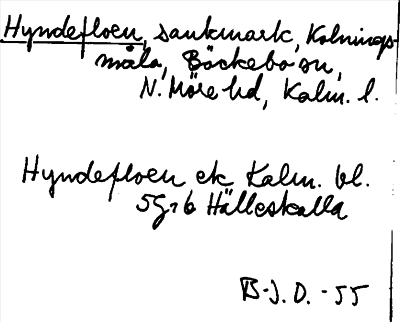 Hyndefloen, sankmark, Kolnings-
måla, Bäckebo sn,
N. Möre hd, Kalm. l.
Hyndefloen ek Kalm. bl.
5G7b Hälleskalla
B-J. D. -55